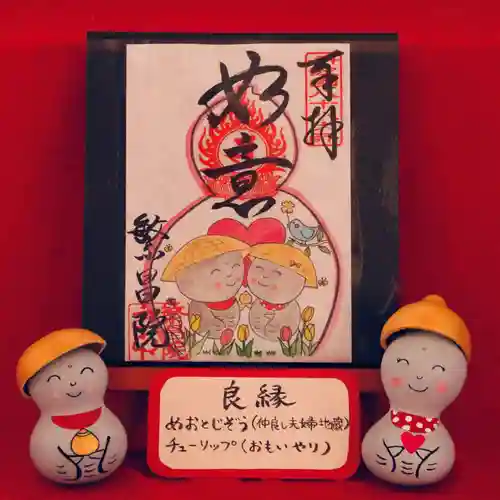 奉拝
如意
繁昌院
良縁
めおとじぞう(仲良し夫婦地蔵)
チューリップ(おもいやり)